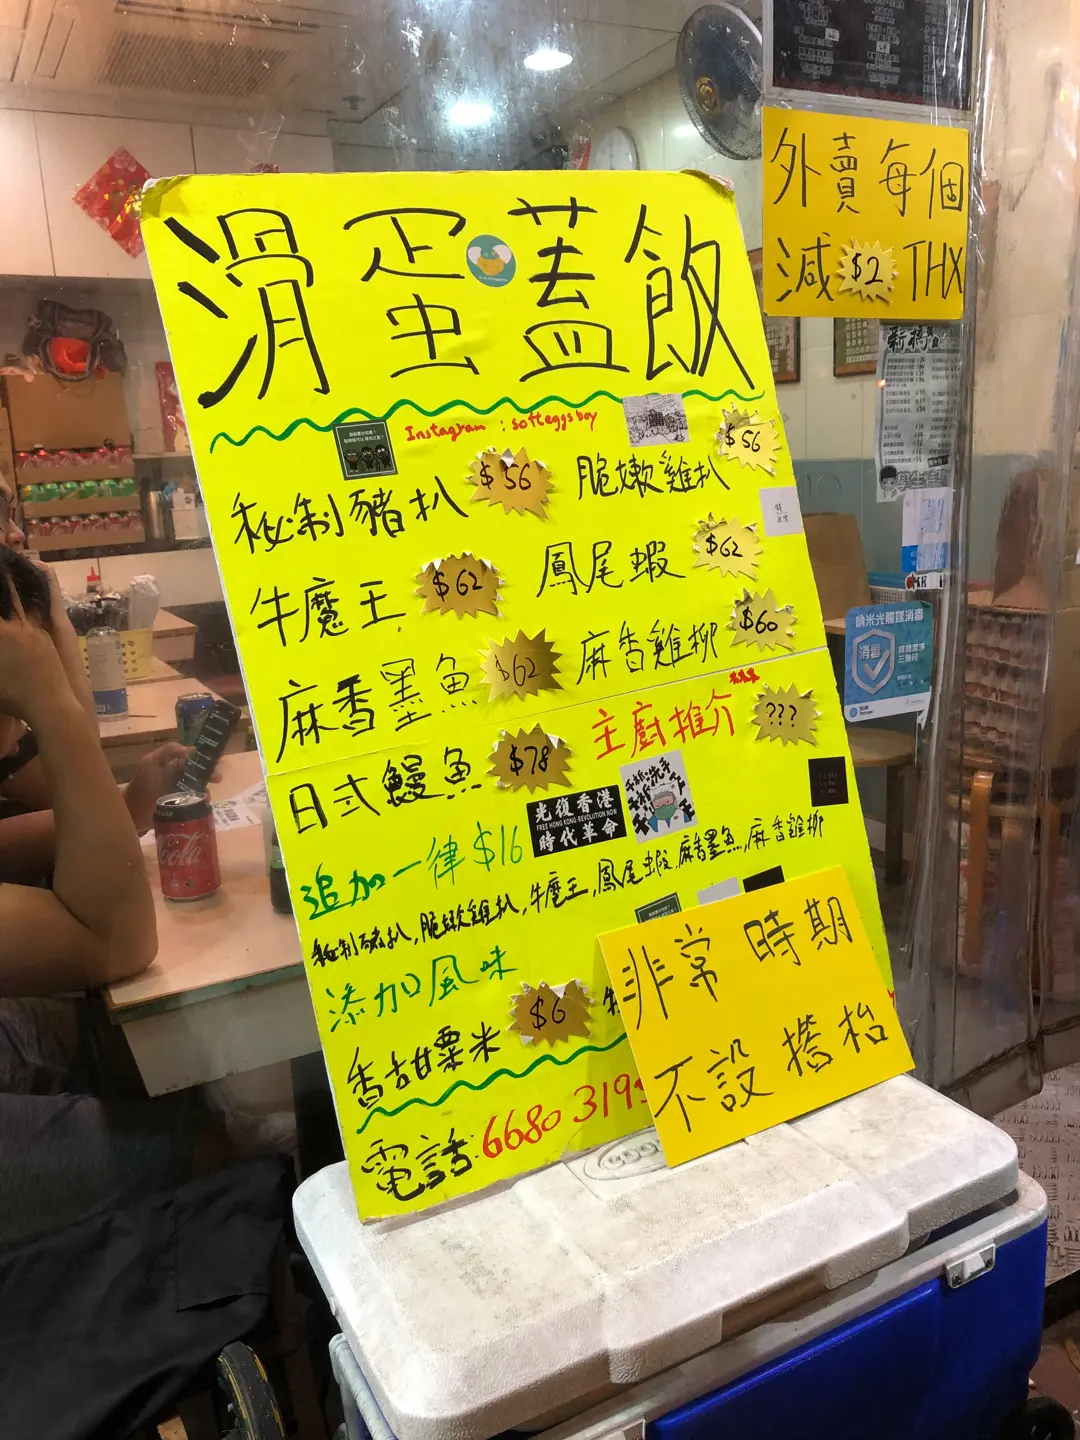 外賣每個
減 $2 THX
滑蛋蓋飯
Instagram : softeggsboy
秘制豬扒 $56 脆嫩雞扒 $56
牛魔王 $62 鳳尾蝦 $62
麻香墨魚 $62 麻香雞柳 $60
日式鰻魚 $78 主廚推介 ???
光復香港
FREE HONG KONG · REVOLUTION NOW
時代革命
追加一律 $16
秘制豬扒, 脆嫩雞扒, 牛魔王, 鳳尾蝦, 麻香墨魚, 麻香雞柳
添加風味
香甜粟米 $6
電話: 6680 319
非常時期
不設搭枱
納米光觸媒消毒
消毒
Cola